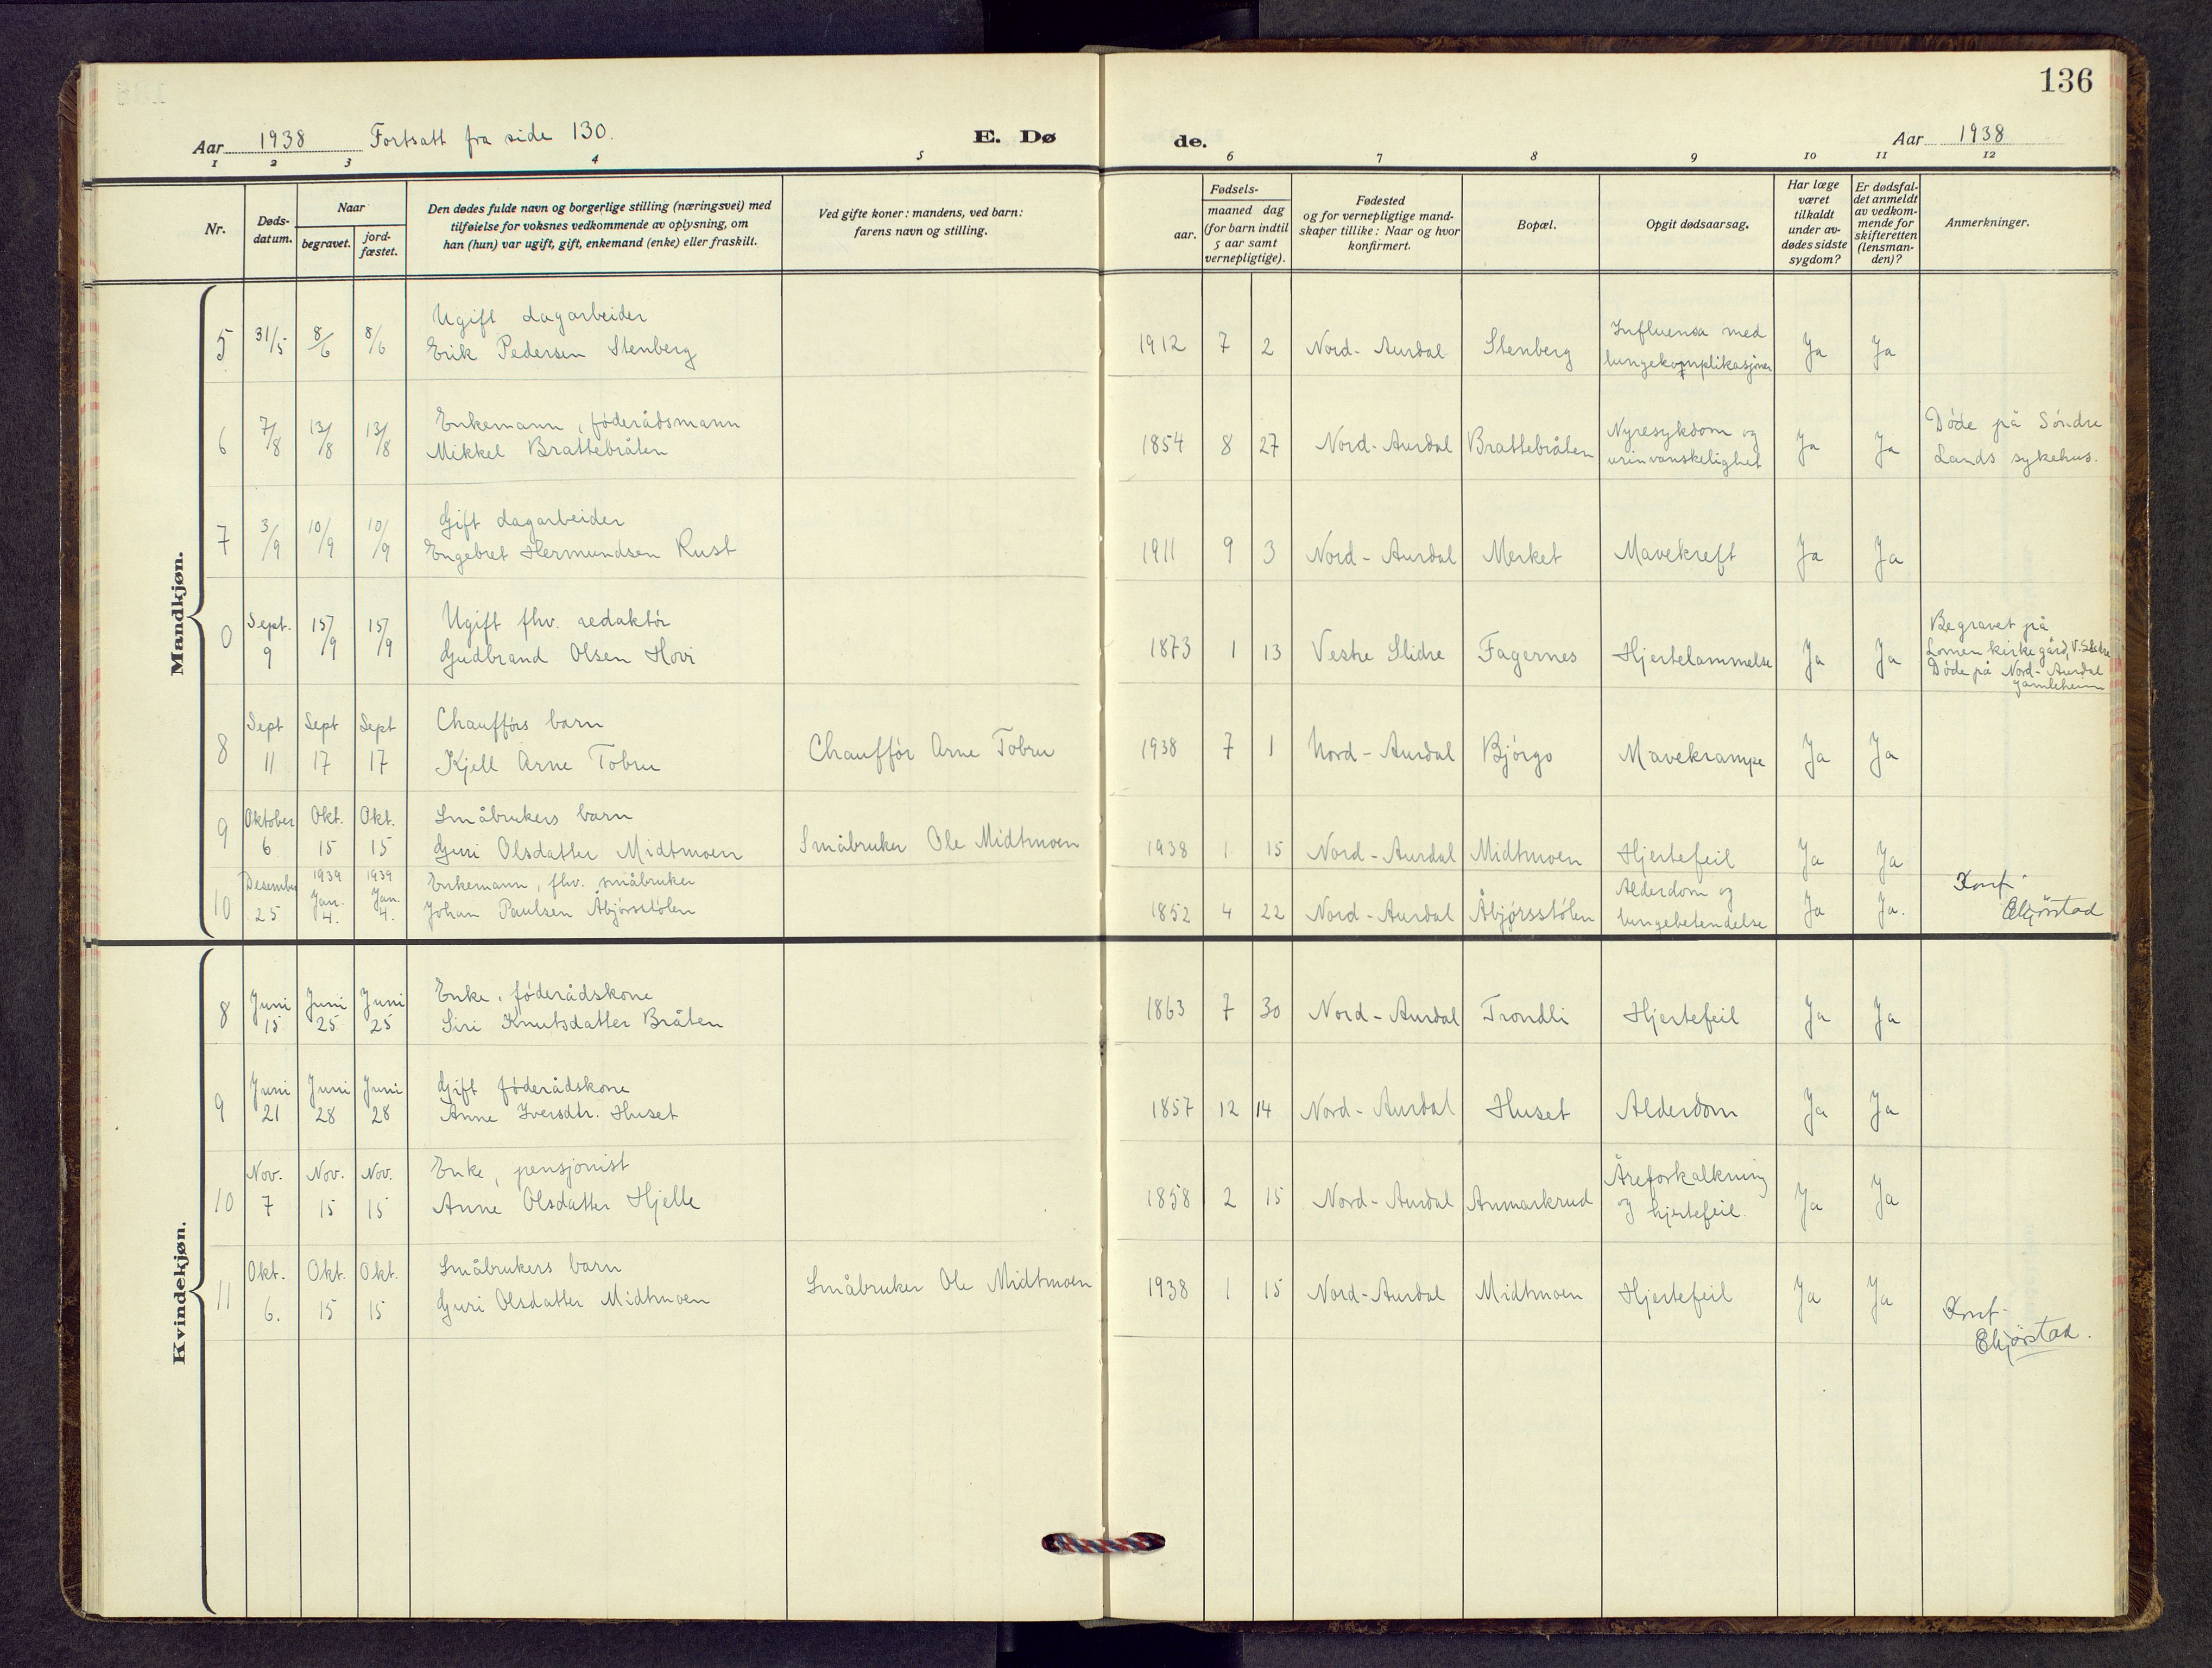 136
Aar 1938 Fortsatt fra side 130.
E. Dø
de.
Aar 1938
1 2 3 4 5 6 7 8 9 10 11 12
Nr.
Døds-
datum.
Naar
begravet.
jord-
fæstet.
Den dødes fulde navn og borgerlige stilling (næringsvei) med
tilføielse for voksnes vedkommende av oplysning, om
han (hun) var ugift, gift, enkemand (enke) eller fraskilt.
Ved gifte koner: mandens, ved barn:
farens navn og stilling.
Fødsels-
aar.
maaned dag
(for barn indtil
5 aar samt
vernepligtige).
Fødested
og for vernepligtige mand-
skaper tillike: Naar og hvor
konfirmert.
Bopæl.
Opgit dødsaarsag.
Har læge
været
tilkaldt
under av-
dødes sidste
sygdom?
Er dødsfal-
det anmeldt
av vedkom-
mende for
skifteretten
(lensman-
den)?
Anmerkninger.
Mandkjøn.
5 31/5 8/6 8/6
Ugift dagarbeider
Erik Pedersen Stenberg
1912 7 2 Nord-Aurdal Stenberg
Influensa med
lungekomplikasjoner
Ja Ja
6 7/8 13/8 13/8
Enkemann, föderådsmann
Mikkel Brattebråten
1854 8 27 Nord-Aurdal Brattebråten
Nyresykdom og
urinvanskelighet
Ja Ja
Döde på Söndre
Lands sykehus.
7 3/9 10/9 10/9
Gift dagarbeider
Engebret Hermundsen Rust
1911 9 3 Nord-Aurdal Merket Mavekreft Ja Ja
0 Sept. 9 15/9 15/9
Ugift fhv. redaktör
Gudbrand Olsen Hovi
1873 1 13 Vestre Slidre Fagernes Hjertelammelse Ja Ja
Begravet på
Lomen kirkegård, V. Slidre
Döde på Nord-Aurdal
gamleheim
8 Sept 11 Sept 17 Sept 17
Chaufförs barn
Kjell Arne Tobru
Chaufför Arne Tobru
1938 7 1 Nord-Aurdal Björgo Mavekrampe Ja Ja
9 Oktober 6 Okt. 15 Okt. 15
Småbrukers barn
Guri Olsdatter Midtmoen
Småbruker Ole Midtmoen
1938 1 15 Nord-Aurdal Midtmoen Hjertefeil Ja Ja
10 Desember 25 1939 Jan. 4. 1939 Jan. 4.
Enkemann, fhv. småbruker
Johan Paulsen Åbjørsstölen
1852 4 22 Nord-Aurdal Åbjørsstölen
Alderdom og
lungebetendelse
Ja Ja.
Konf
Kvindekjøn.
8 Juni 15 Juni 25 Juni 25
Enke, föderådskone
Siri Knutsdatter Bråten
1863 7 30 Nord-Aurdal Trondli Hjertefeil Ja Ja
9 Juni 21 Juni 28 Juni 28
Gift föderådskone
Anne Iversdtr. Huset
1857 12 14 Nord-Aurdal Huset Alderdom Ja Ja
10 Nov. 7 Nov. 15 Nov. 15
Enke, pensjonist
Anne Olsdatter Hjelle
1858 2 15 Nord-Aurdal Anmarkrud
Åreforkalkning
og hjertefeil.
Ja Ja
11 Okt. 6. Okt. 15 Okt. 15
Småbrukers barn
Guri Olsdatter Midtmoen
Småbruker Ole Midtmoen
1938 1 15 Nord-Aurdal Midtmoen Hjertefeil Ja Ja
Konf.